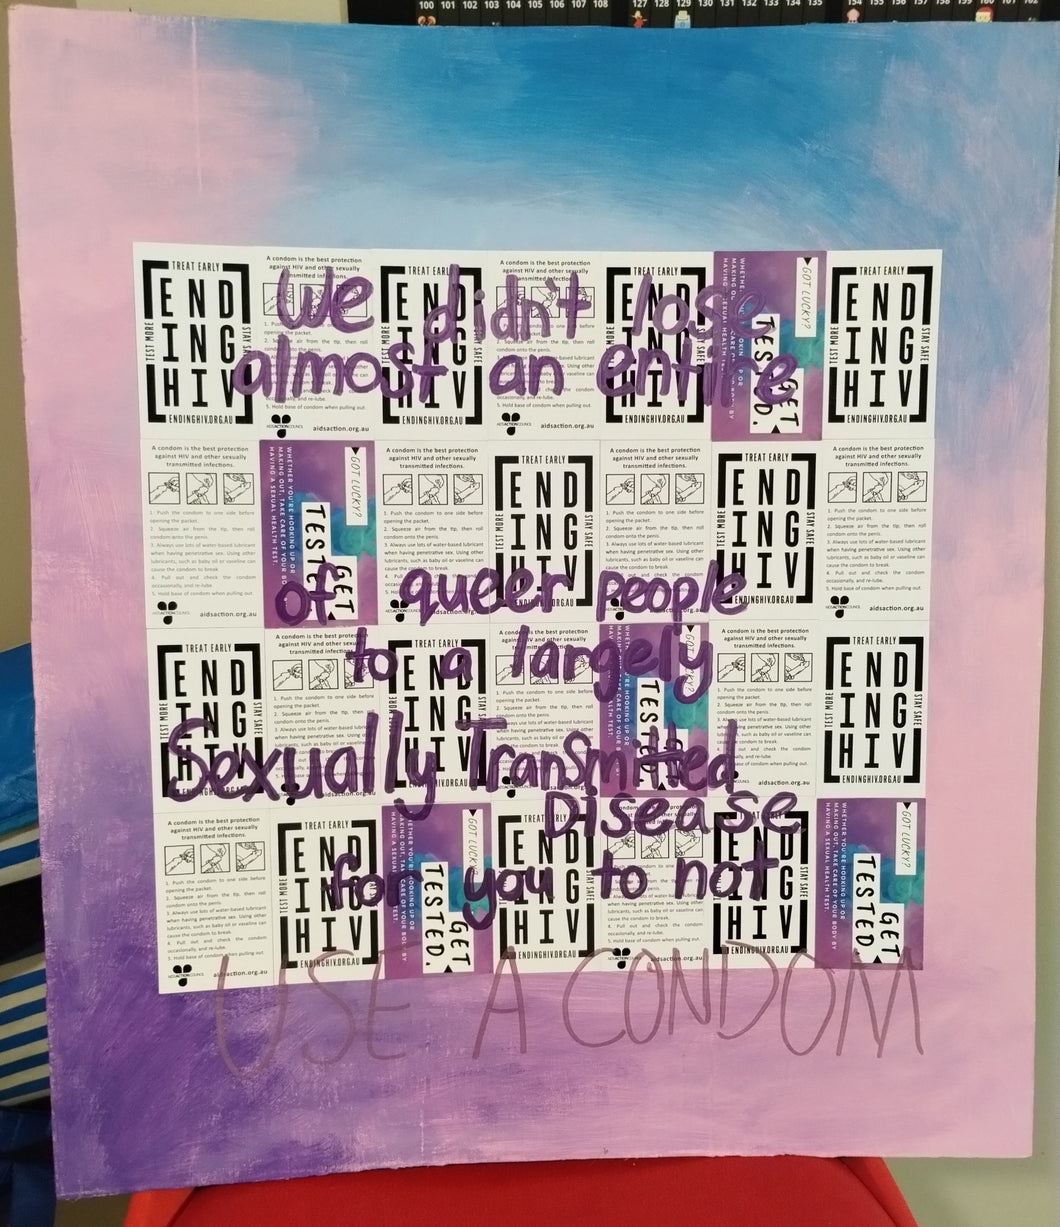 100 101 102 103 104 105 106 107 108 127 128 129 130 131 132 133 134 135 154 155 156 157 158 159 160 161 162
We didn't lose
almost an entire
of queer people
to a largely
Sexually Transmitted
Disease
for you to not
USE A CONDOM
TREAT EARLY
TEST MORE
END
ING
HIV
STAY SAFE
ENDINGHIV.ORG.AU
A condom is the best protection
against HIV and other sexually
transmitted infections.
1. Push the condom to one side before
opening the packet.
2. Squeeze air from the tip, then roll
condom onto the penis.
3. Always use lots of water-based lubricant
when having penetrative sex. Using other
lubricants, such as baby oil or vaseline can
cause the condom to break.
4. Pull out and check the condom
occasionally, and re-lube.
5. Hold base of condom when pulling out.
AIDSACTIONCOUNCIL
aidsaction.org.au
GOT LUCKY?
GET
TESTED.
WHETHER YOU'RE HOOKING UP OR
MAKING OUT, TAKE CARE OF YOUR BODY BY
HAVING A SEXUAL HEALTH TEST.